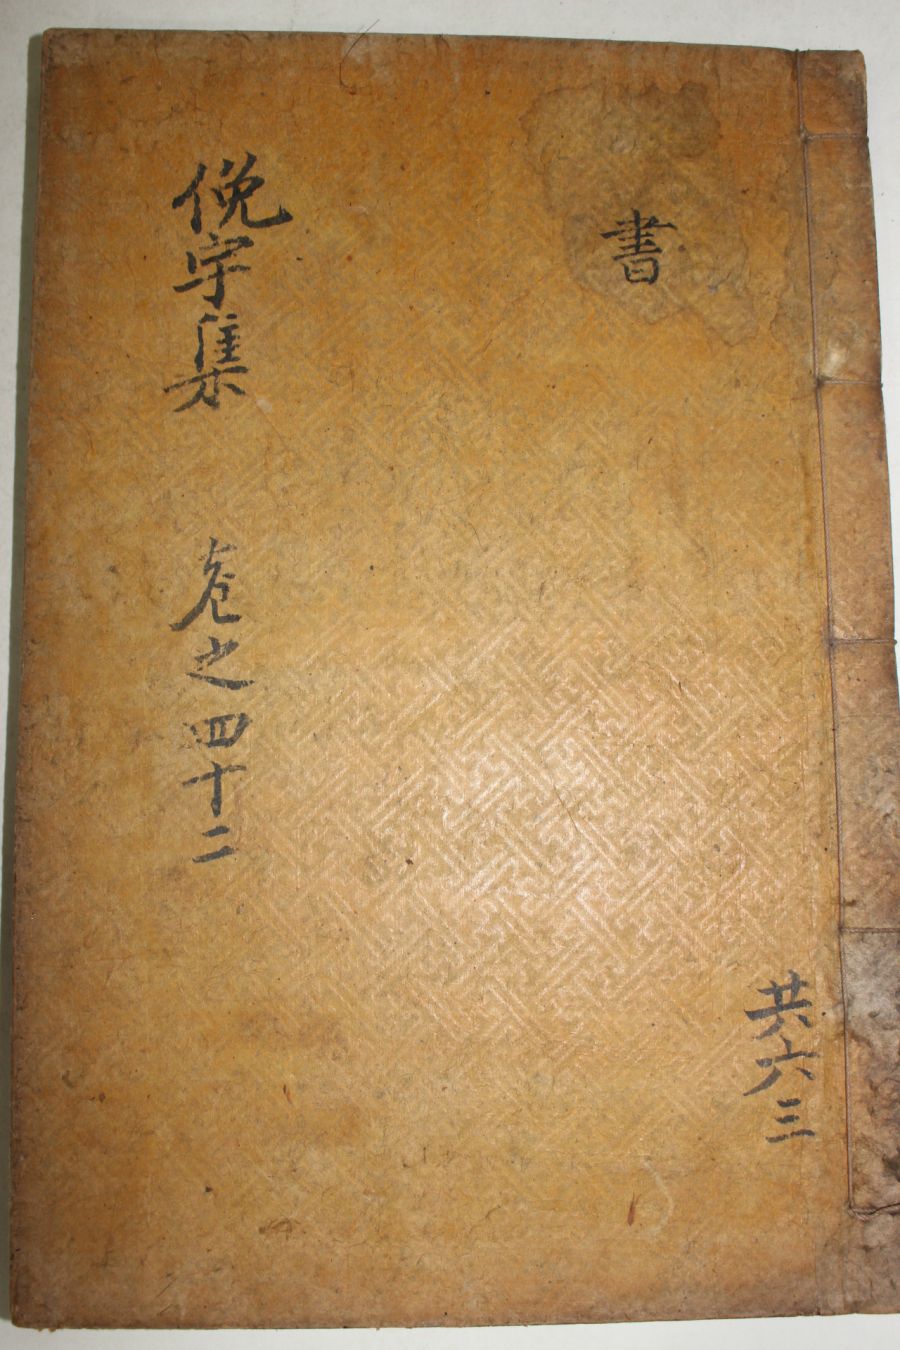 書
共六三
俛宇集 卷之四十二